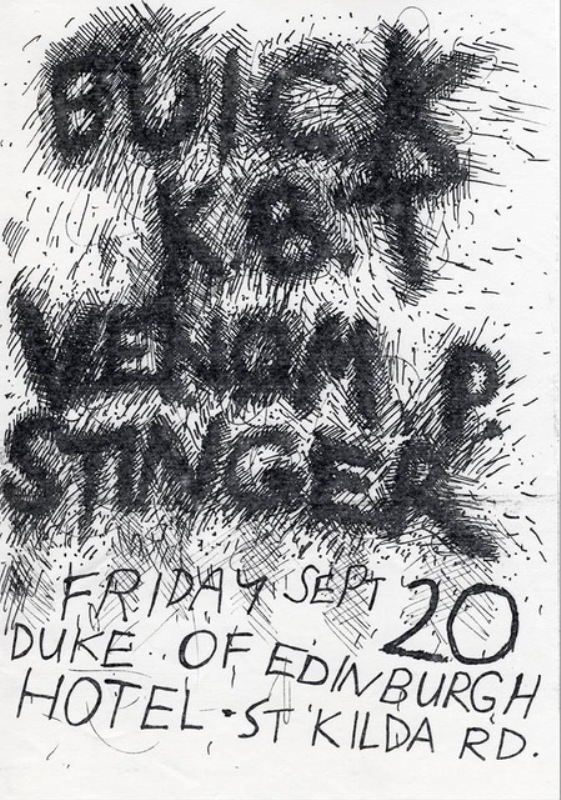 BUICK
K.B.T
VENOM P.
STINGER
FRIDAY SEPT 20
DUKE OF EDINBURGH
HOTEL · ST KILDA RD.